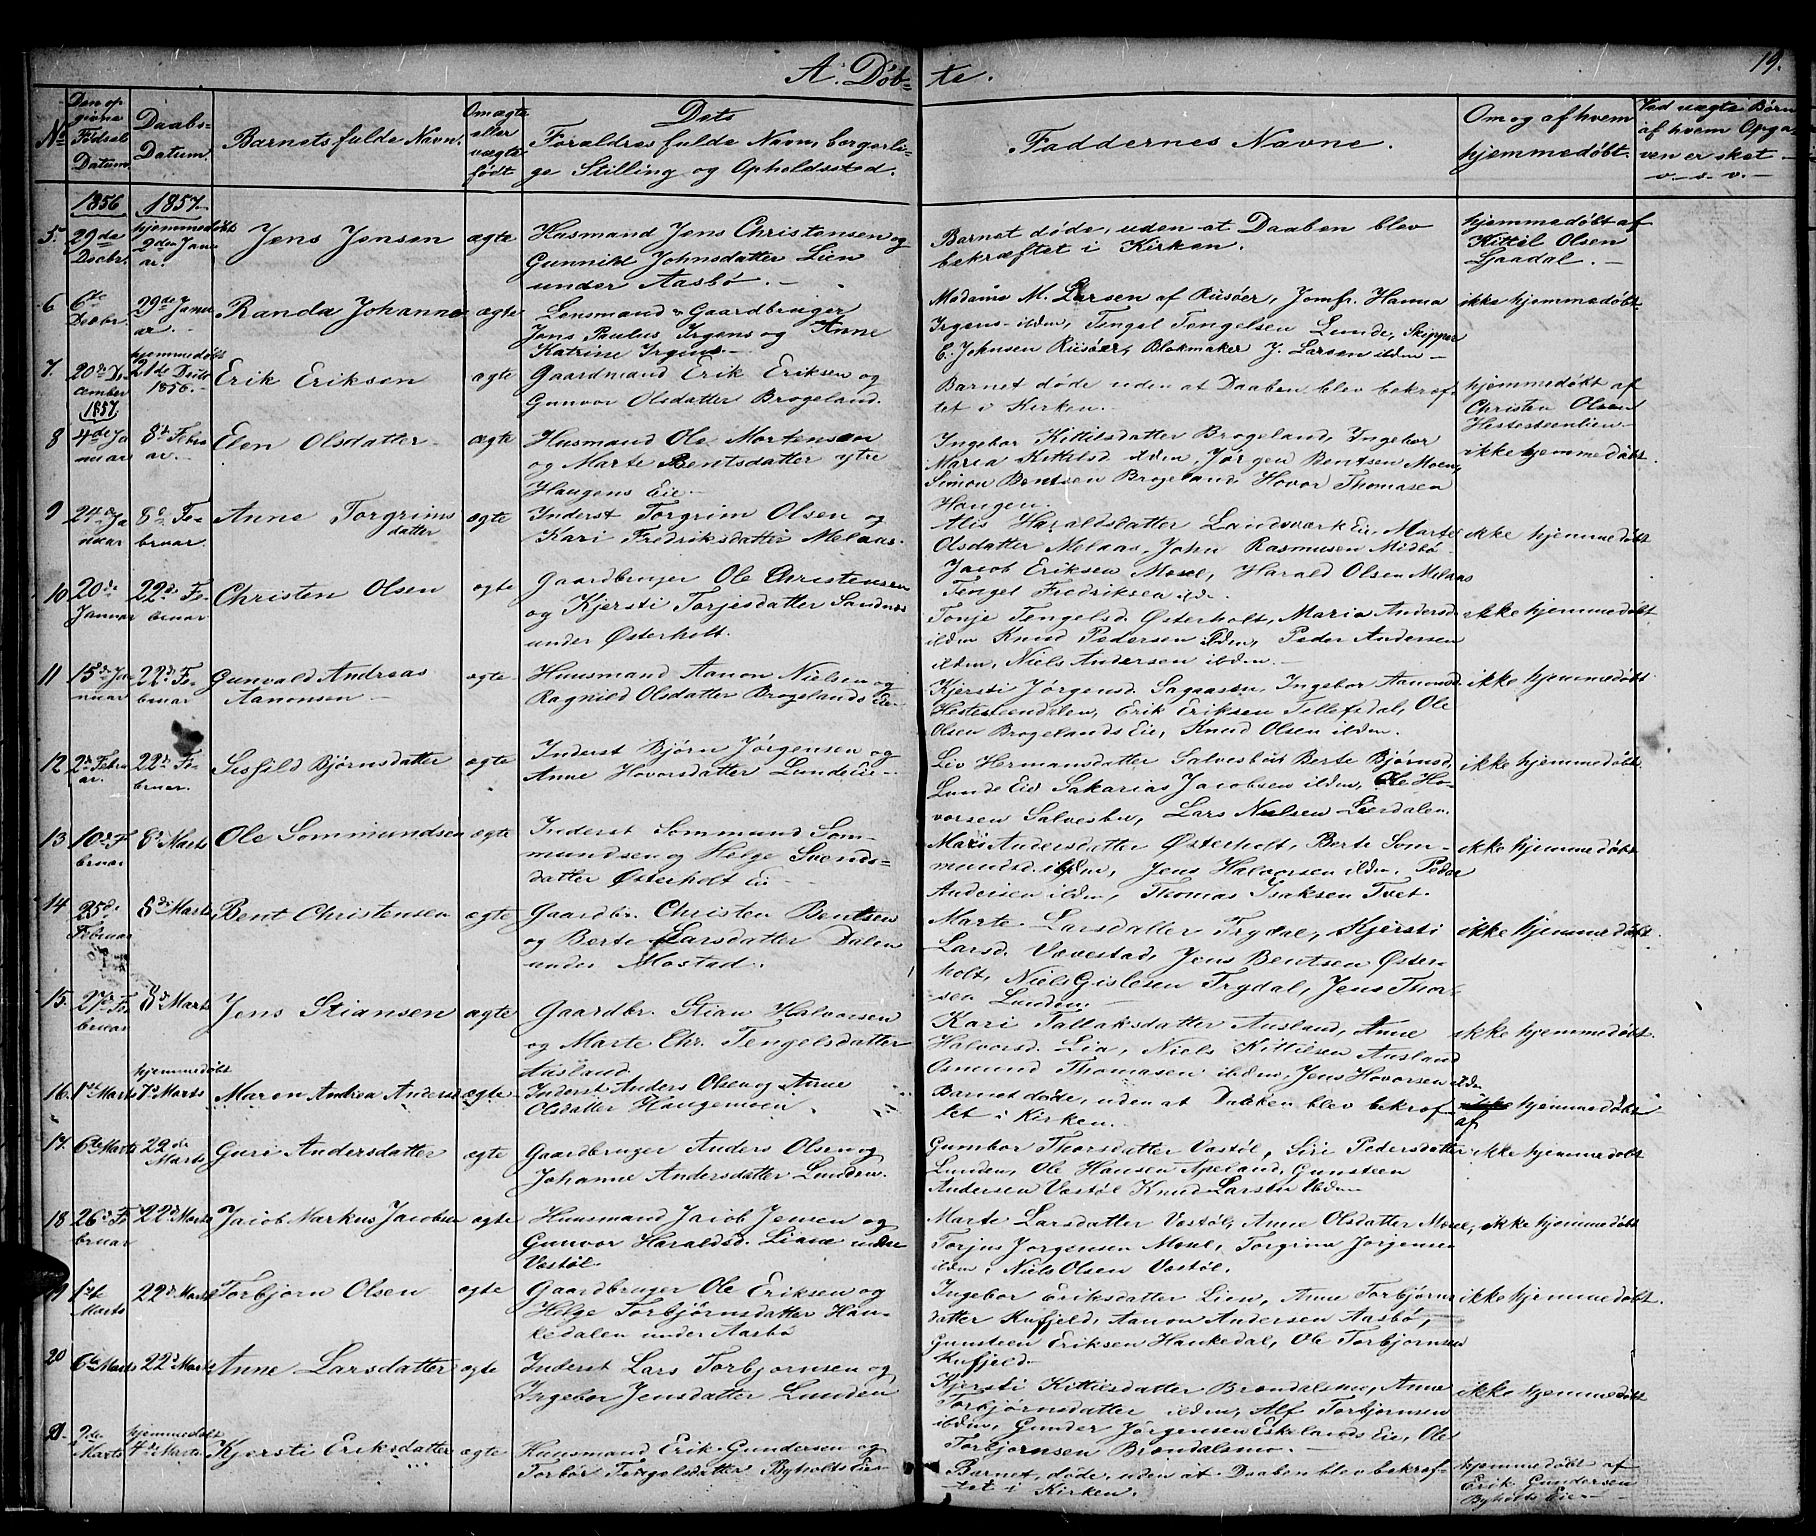 A. Døb-
te.
19.
No
Den op
givne
Fødsels
Datum
Daabs-
Datum.
Barnets fulde Navn.
Om ægte
eller
uægte
født
Dets
Forældres fulde Navn, borgerli-
ge Stilling og Opholdssted.
Faddernes Navne.
Om og af hvem
hjemmedøbt.
Ved uægte Børn
af hvem Opga-
ven er sket
v. s. v.
1856
1857
5. 29de Decbr. hjemmedøbt 9den Janu ar. Jens Jensen ægte
Husmand Jens Christensen og
Gunnild Johnsdatter Lien
under Aasbø.
Barnet døde, uden at Daaben blev
bekræftet i Kirken.
hjemmedøbt af
Kittil Olsen
Ljaadal.
6 6te Decbr 29de Janu ar. Randa Johanne ægte
Lensmand & Gaardbruger
Jens Paulus Irgens og Anne
Katrine Irgens
Madame M. Larsen af Riisöer, Jomfr. Hanna
Irgens ibdm, Tengel Tengelsen Lunde, Skipper
C. Johnsen Riisöer, Blokmaker J. Larsen ibdm
ikke hjemmedøbt
7. 20de De cember hjemmedøbt 21de Dcbr 1856. Erik Eriksen ægte
Gaardmand Erik Eriksen og
Gunvor Olsdatter Brogeland.
Barnet døde uden at Daaben blev bekræf-
tet i Kirken.
hjemmedøbt af
Christen Olsen
Hestesteenlien
1857
8 4de Ja nuar 8de Febru ar. Elen Olsdatter ægte
Husmand Ole Mortensen
og Marte Bentsdatter ytre
Haugens Eie
Ingebor Kittilsdatter Brogeland, Ingebor
Maria Kittilsd ibdm, Jörgen Bentsen Moen,
Simon Bentsen Brogeland, Hovor Thomasen
Haugen.
ikke hjemmedøbt.
9 24de Ja nuar 8de Fe- bruar. Anne Torgrims datter ægte
Inderst Torgrim Olsen og
Kari Fredriksdatter Melaas.
Alis Haraldsdatter Landsværk Eie, Marte
Olsdatter Melaas, John Rasmusen Midbö
Jacob Eriksen Mosel, Harald Olsen Melaas
Tengel Fredriksen ibdm.
ikke hjemmedøbt
10 20de Januar 22de Fe- bruar. Christen Olsen ægte
Gaardbruger Ole Christensen
og Kjersti Torjesdatter Sandnes
under Østerholt.
Tonje Tengelsd. Østerholt, Maria Andersd.
ibdm Knud Pedersen ibdm, Peder Andersen
ibdm, Niels Andersen ibdm.
ikke hjemmedøbt.
11 15de Ja nuar 22de Fe- bruar Gunvald Andreas Aanonsen ægte
Huusmand Aanon Nielsen og
Ragnild Olsdatter Brogelands Eie
Kjersti Jørgensd. Sagaasen, Ingebor Aanonsd.
Hestesteendalen, Erik Eriksen Tellefsdal, Ole
Olsen Brogelands Eie, Knud Olsen ibdm.
ikke hjemmedøbt
12 2de Febru ar. 22de Fe- bruar. Sisfild Bjørnsdatter ægte
Inderst Bjørn Jørgensen og
Anne Hovorsdatter Lunde Eie
Liv Hermansdatter Salvesbu Berte Bjørnsd.
Lunde Eie Sakarias Jacobsen ibdm, Ole Ho-
vorsen Salvesbu, Lars Nielsen Lierdalen.
ikke hjemmedøbt.
13 10de Fe bruar 8de Marts Ole Sommundsen ægte
Inderst Sommund Som-
mundsen og Helge Svends-
datter Østerholt Eie
Mari Andersdatter Østerholt, Berte Som-
mundsd. ibdm, Jens Halvorsen ibdm. Peder
Andersen ibdm, Thomas Isaksen Tvet.
ikke hjemmedøbt
14 25de Februar 8de Marts Bent Christensen ægte
Gaardbr. Christen Bentsen
og Berte Larsdatter Dalen
under Mostad.
Marte Larsdatter Trydal, Kjersti
Larsd. Vævestad, Jens Bentsen Østen
holt, Niels Gislesen Trydal, Jens Thor-
sen Lunden.
ikke hjemmedøbt.
15. 27de Fe- bruar 8de Marts Jens Stiansen ægte
Gaardbr. Stian Halvorsen
og Marte Chr. Tengelsdatter
Ausland
Kari Tallaksdatter Ausland, Anne
Halvorsd. Lia, Niels Kittilsen Ausland
Osmund Thomasen ibdm, Jens Hovorsen ibdm
ikke hjemmedøbt.
16. 1ste Marts hjemmedøbt 7de Marts Maren Andrea Andersd. ægte
Inderst Anders Olsen og Anne
Olsdatter Haugemoen.
Barnet døde, uden at Daaben blev bekræf-
tet i Kirken.
hjemmedøbt
af
17. 6te Marts 22de Marts Guri Andersdatter ægte
Gaardbruger Anders Olsen og
Johanne Andersdatter Lunden.
Gumbor Thorsdatter Vastöl, Siri Pedersdatter
Lunden, Ole Hansen Apeland, Gunsteen
Andersen Vastöl Knud Larsen ibdm
ikke hjemmedøbt
18 26de Fe bruar 22de Marts Jacob Markus Jacobsen ægte
Huusmand Jacob Jensen og
Gunvor Haraldsd. Liane under
Vastöl.
Marte Larsdatter Vastöl, Anne Olsdatter Mosel,
Torjus Jorgensen Mosel, Torgrim Jorgensen
ibdm, Niels Olsen Vastöl.
ikke hjemmedøbt
19 1ste Marts 22de Marts Torbjorn Olsen ægte
Gaardbruger Ole Eriksen og
Helge Torbjörnsdatter Hau-
kedalen under Aasbø
Ingebor Eriksdatter Lien, Anne Torbjörns
datter Kufjeld, Aanon Andersen Aasbø,
Gunsteen Eriksen Haukedal, Ole Torbjornsen
Kufjeld.
ikke hjemmedøbt.
20 6te Marts 22de Marts Anne Larsdatter ægte
Inderst Lars Torbjornsen og
Ingebor Jensdatter Lunden
Kjersti Kittilsdatter Brøndalsmo, Anne
Torbjørnsdatter ibdm, Alf Torbjornsen
ibdm, Gunder Jørgensen Eskelands Eie, Ole
Torbjornsen Brøndalsmo.
ikke hjemmedøbt
21. 2de Marts hjemmedøbt 4de Marts Kjersti Eriksdatter ægte
Huusmand Erik Gundersen og
Torbor Tengelsdatter Byholts Eie
Barnet, døde, uden at Daaben blev bekræf-
tet i Kirken.
hjemmedøbt af
Erik Gundersen
Byholts Eie